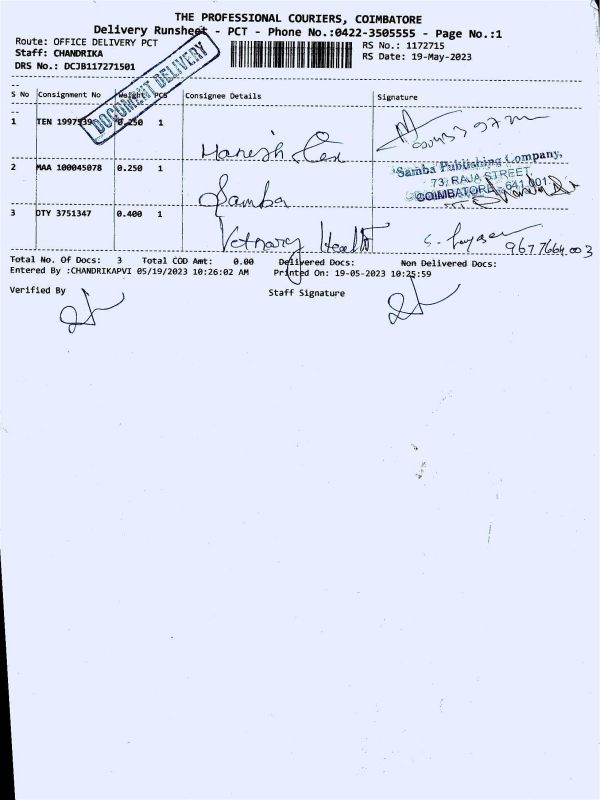 THE PROFESSIONAL COURIERS, COIMBATORE
Delivery Runsheet - PCT - Phone No.:0422-3505555 - Page No.:1
Route: OFFICE DELIVERY PCT
RS No.: 1172715
Staff: CHANDRIKA
RS Date: 19-May-2023
DRS No.: DCJB117271501
DOCUMENT DELIVERY
S No Consignment No Weight PCS Consignee Details Signature
1 TEN 0.250 1
Haresh
2 MAA 100045078 0.250 1
Samba
Samba Publishing Company,
73, RAJA STREET,
COIMBATORE - 641 001
3 DTY 3751347 0.400 1
Vetnary Health
9677664003
Total No. Of Docs: 3 Total COD Amt: 0.00 Delivered Docs: Non Delivered Docs:
Entered By :CHANDRIKAPVI 05/19/2023 10:26:02 AM Printed On: 19-05-2023 10:25:59
Verified By
Staff Signature